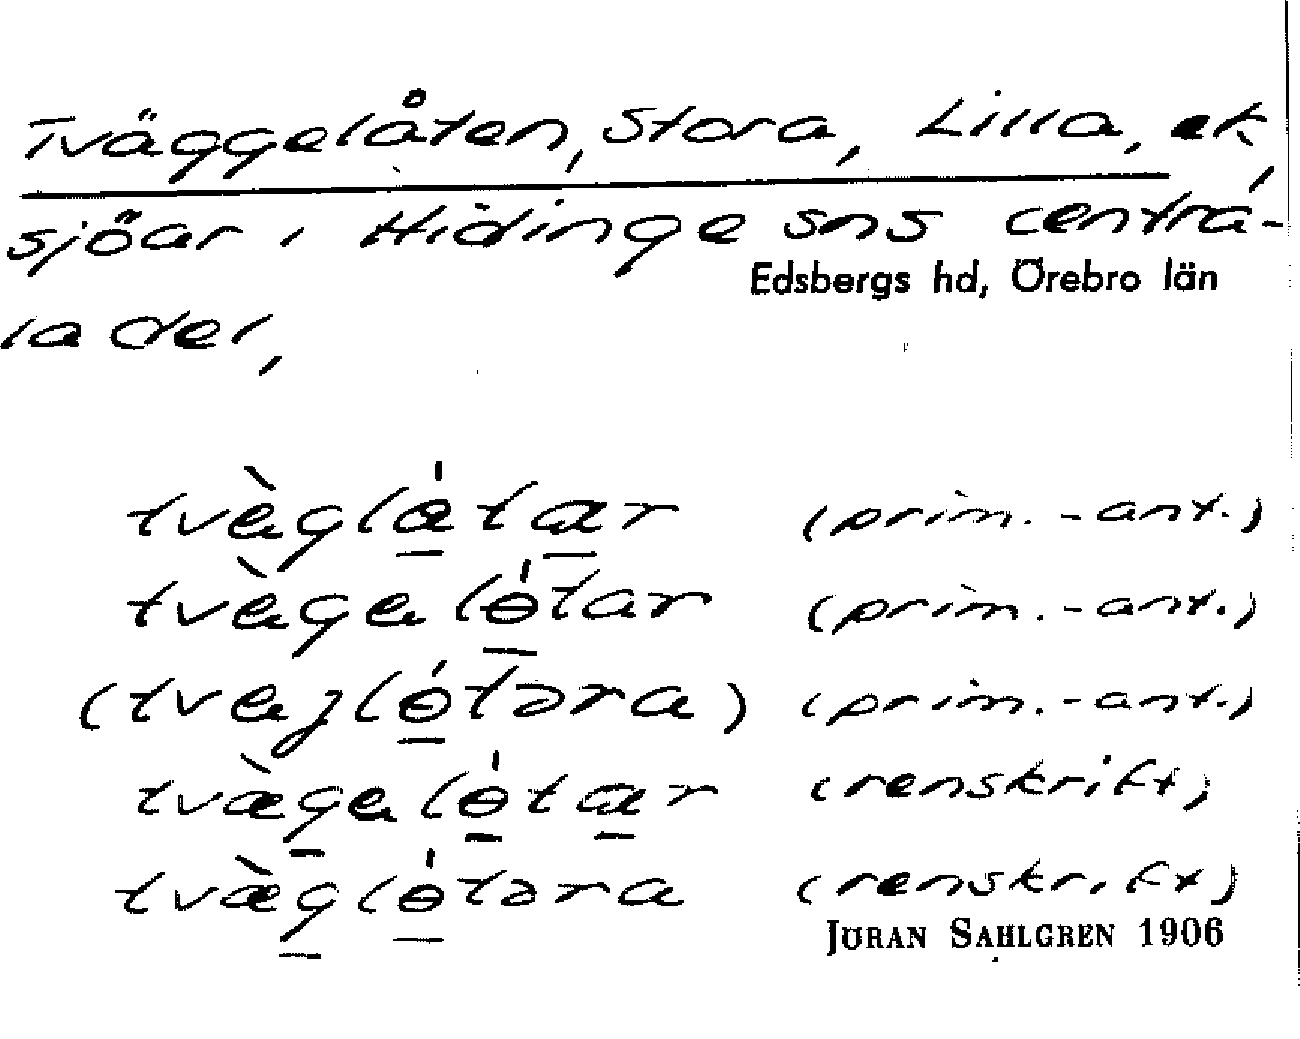 Tväggelåten, Stora, Lilla, ek,
sjöar i Hidinge sns centra-
Edsbergs hd, Örebro län
la del,
tvègló̱ta̱r (prim.-ant.)
tvègeló̱tar (prim.-ant.)
(tvegló̱təra) (prim.-ant.)
tvæ̀g̱eló̱ta̱r (renskrift)
tvæ̀g̱ló̱təra (renskrift)
JÖRAN SAHLGREN 1906